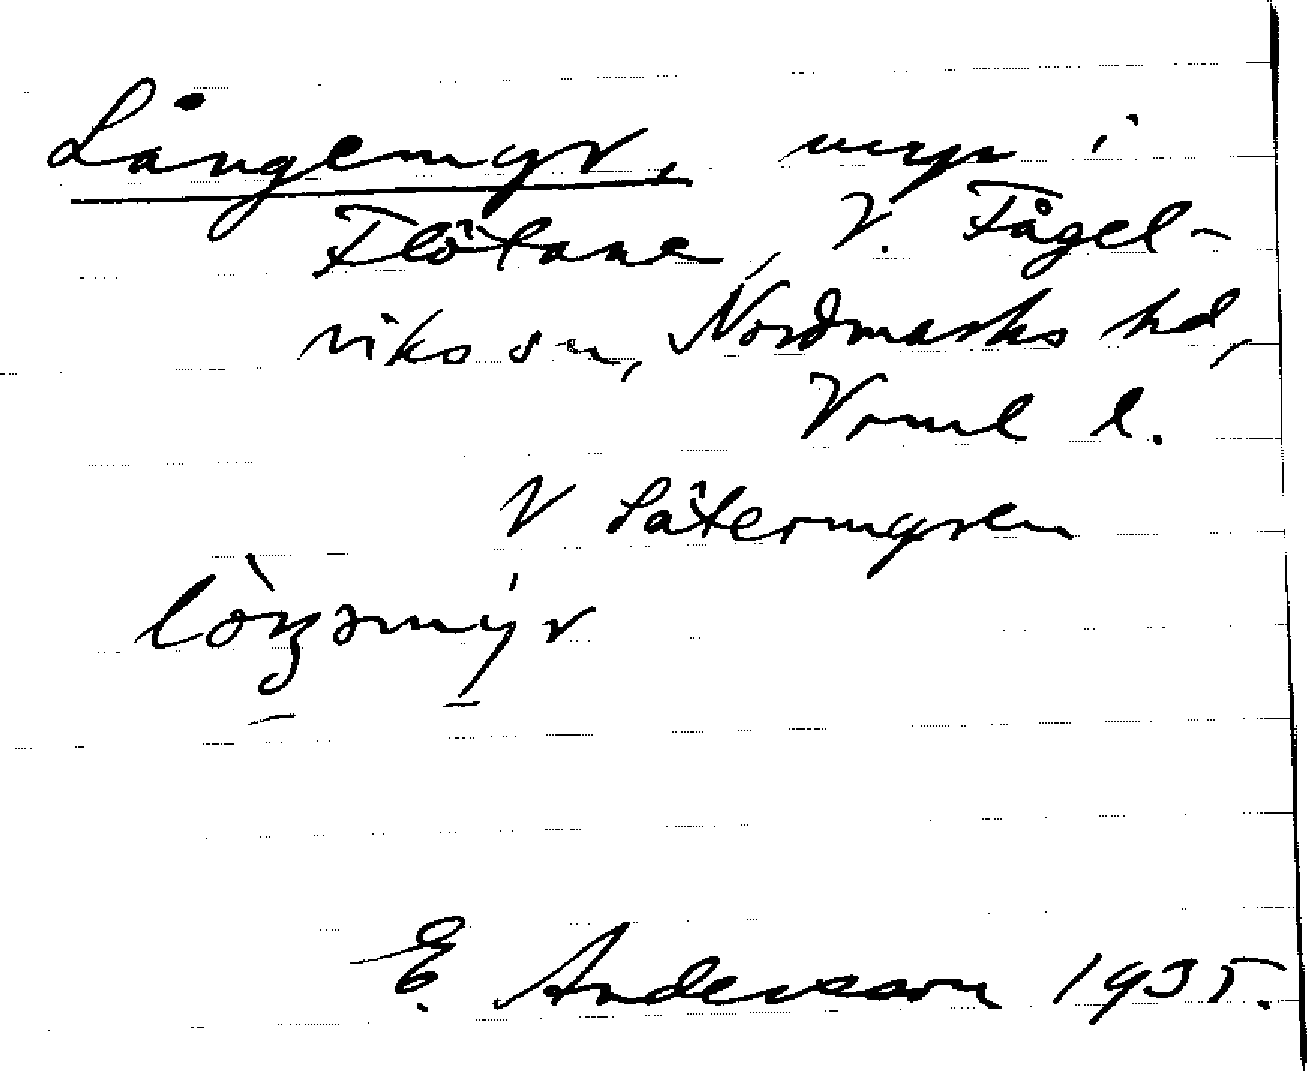 Långemyr, myr i
Flötane, V. Fågel-
viks sn, Nordmarks hd,
Vrml l.
V Sätermyren
E. Andersson 1935.